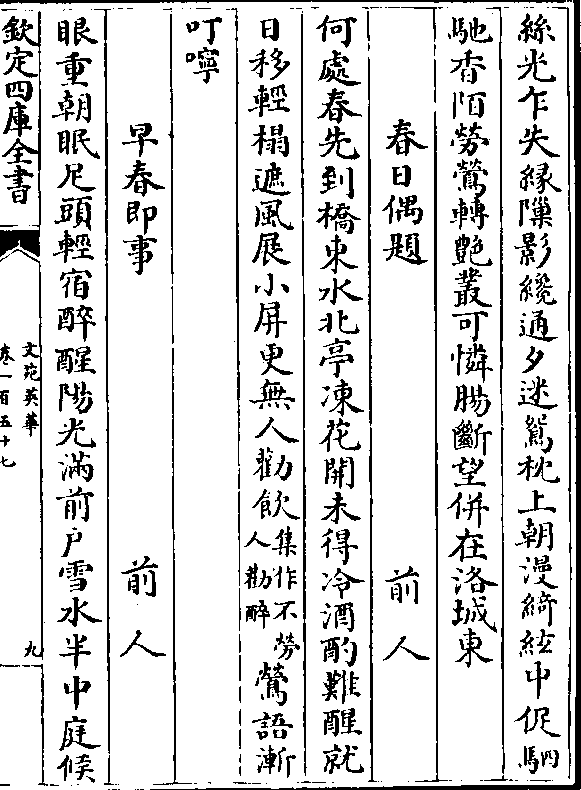 絲光乍失緣隟影纔通夕迷鴛枕上朝漫綺絃中促駟
馳香陌勞鶯轉艷叢可憐腸斷望併在洛城東
春日偶題　前人
何處春先到橋東水北亭凍花開未得冷酒酌難醒就
日移輕榻遮風展小屏更無人勸飲集作不勞人勸醉鶯語漸
叮嚀
早春即事　前人
眼重朝眠足頭輕宿醉醒陽光滿前戶雪水半中庭候
欽定四庫全書
文苑英華
卷一百五十七
九